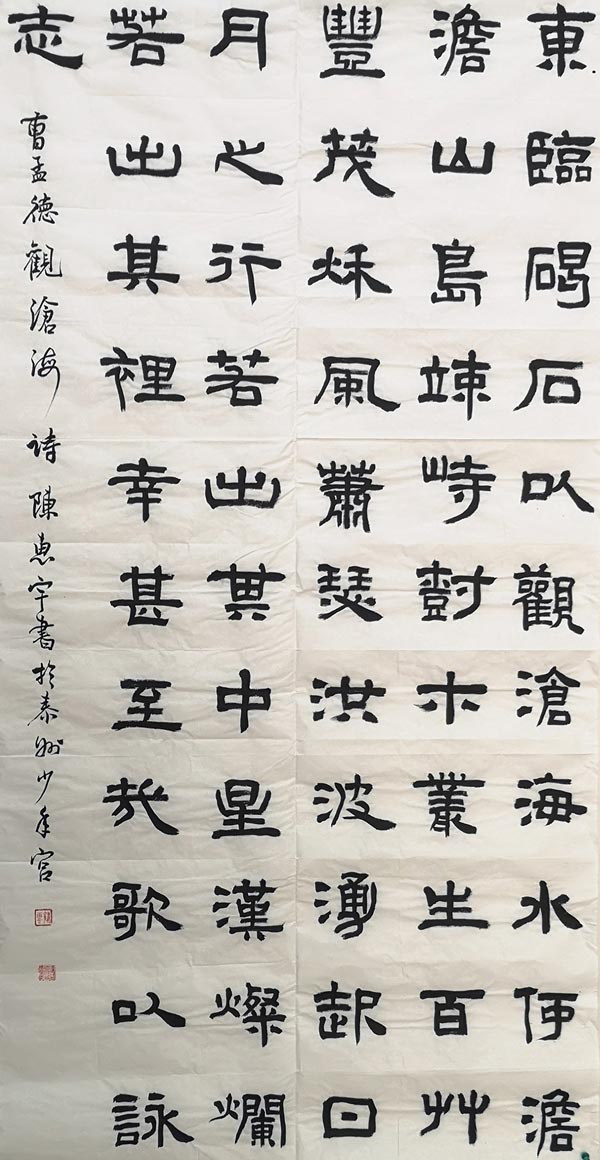 東臨碣石以觀滄海水何澹
澹山島竦峙尌木叢生百艸
豐茂秋風蕭瑟洪波湧起日
月之行若出其中星漢燦爛
若出其裡幸甚至哉歌以詠
志
曹孟德觀滄海詩陳惠宇書於泰州少年宮